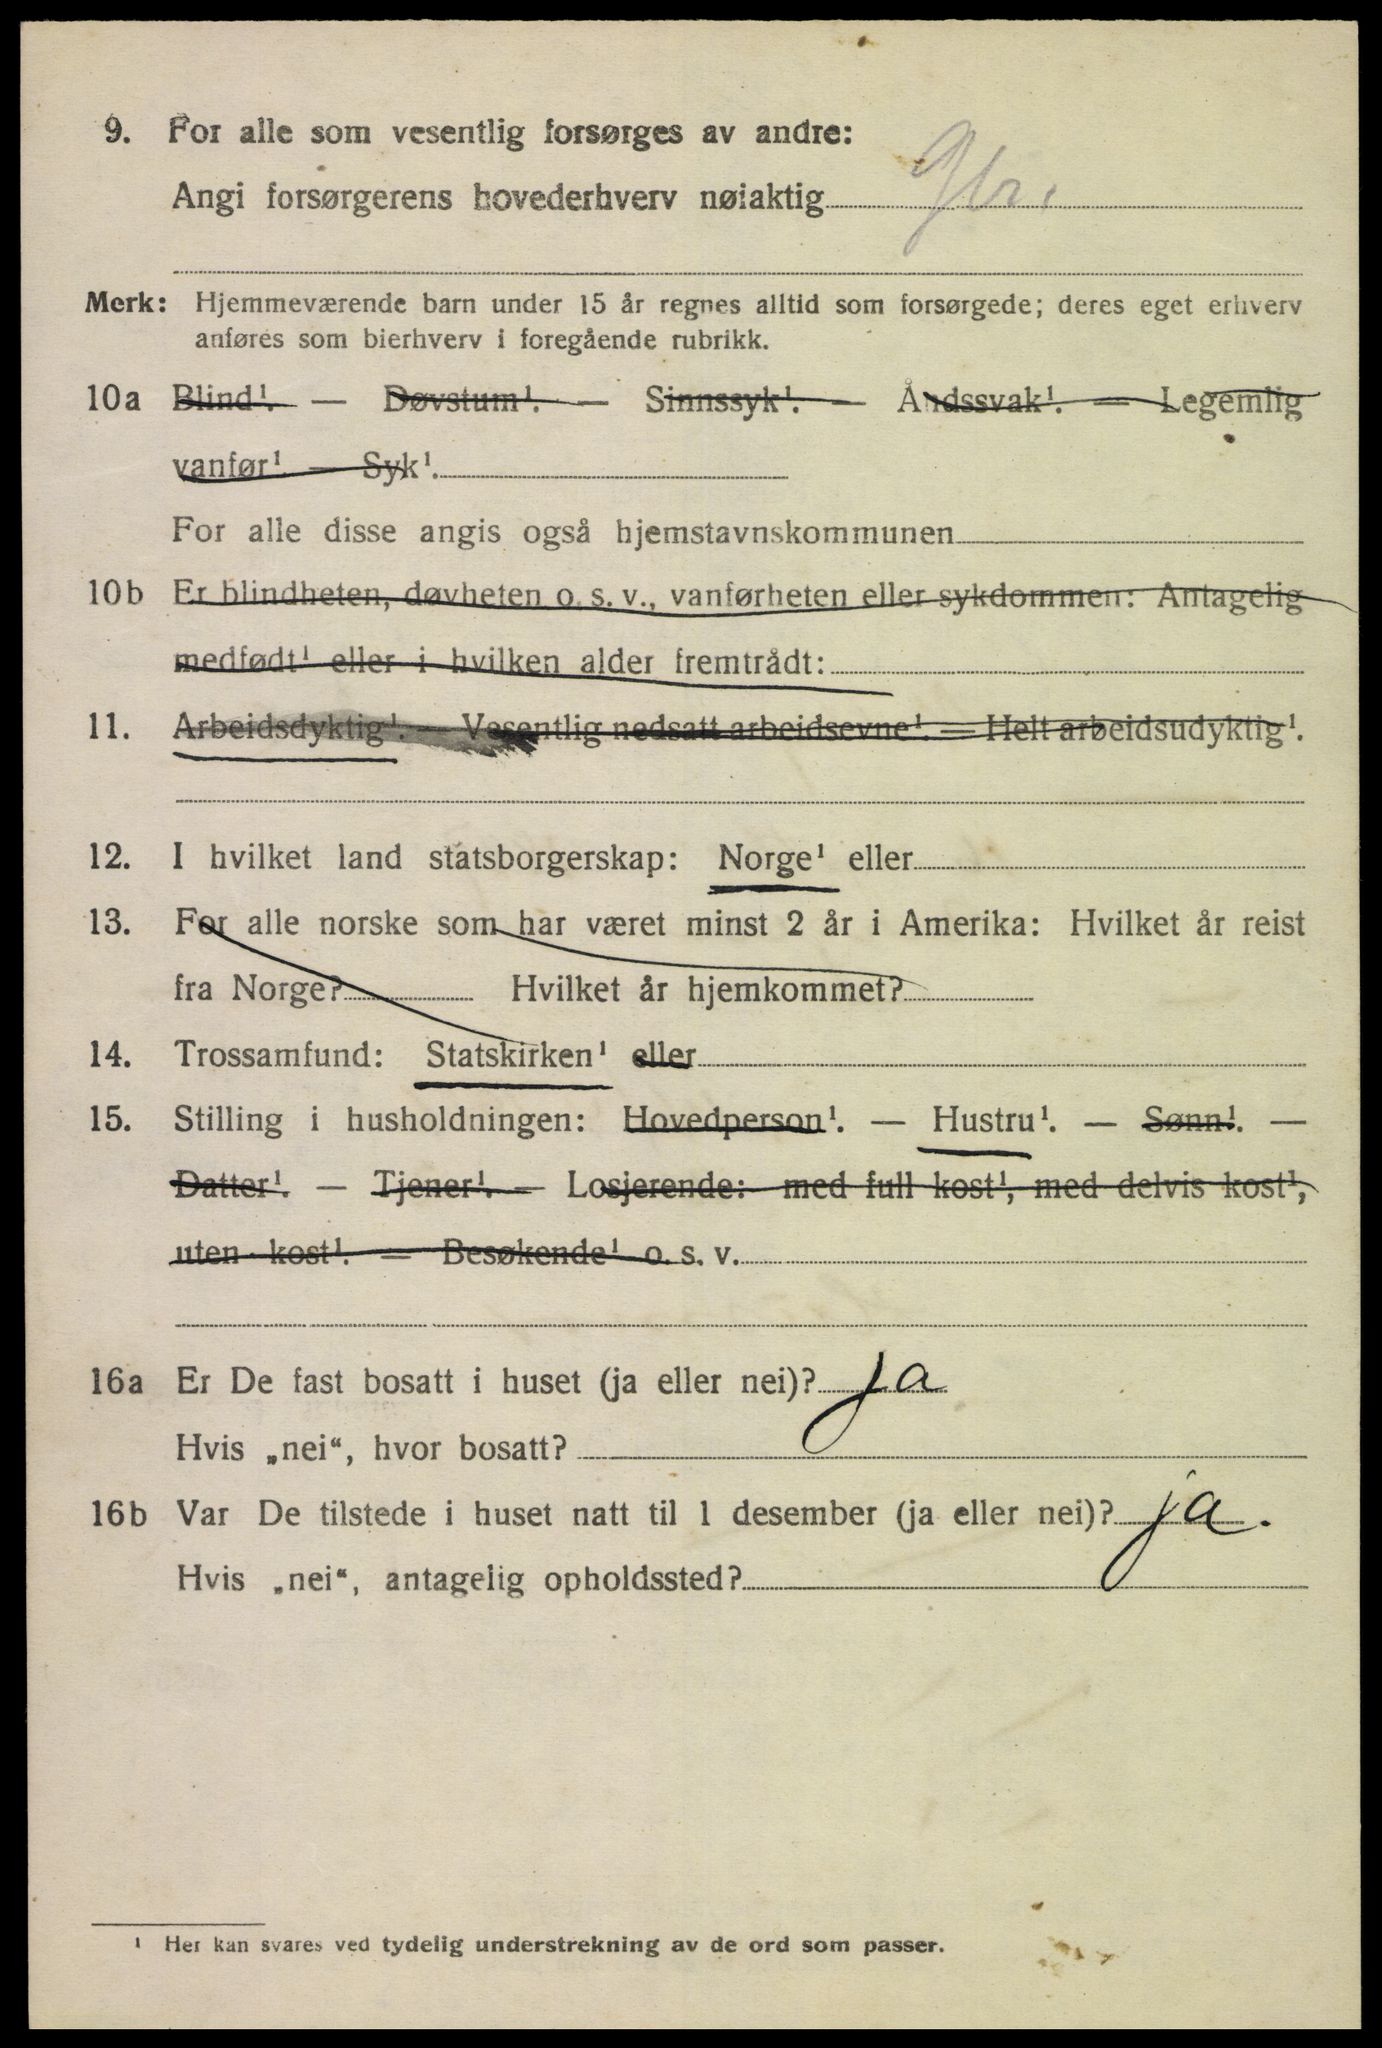 9. For alle som vesentlig forsørges av andre:
Angi forsørgerens hovederhverv nøiaktig Gbr.
Merk: Hjemmeværende barn under 15 år regnes alltid som forsørgede; deres eget erhverv
anføres som bierhverv i foregående rubrikk.
10a Blind¹. — Døvstum¹. — Sinnssyk¹. — Åndssvak¹. — Legemlig
vanfør¹. — Syk¹.
For alle disse angis også hjemstavnskommunen
10b Er blindheten, døvheten o. s. v., vanførheten eller sykdommen: Antagelig
medfødt¹ eller i hvilken alder fremtrådt:
11. Arbeidsdyktig¹. — Vesentlig nedsatt arbeidsevne¹. — Helt arbeidsudyktig¹.
12. I hvilket land statsborgerskap: Norge¹ eller
13. For alle norske som har været minst 2 år i Amerika: Hvilket år reist
fra Norge? Hvilket år hjemkommet?
14. Trossamfund: Statskirken¹ eller
15. Stilling i husholdningen: Hovedperson¹. — Hustru¹. — Sønn¹. —
Datter¹. — Tjener¹. — Losjerende: med full kost¹, med delvis kost¹,
uten kost¹. — Besøkende¹ o. s. v.
16a Er De fast bosatt i huset (ja eller nei)? ja
Hvis „nei“, hvor bosatt?
16b Var De tilstede i huset natt til 1 desember (ja eller nei)? ja.
Hvis „nei“, antagelig opholdssted?
¹ Her kan svares ved tydelig understrekning av de ord som passer.